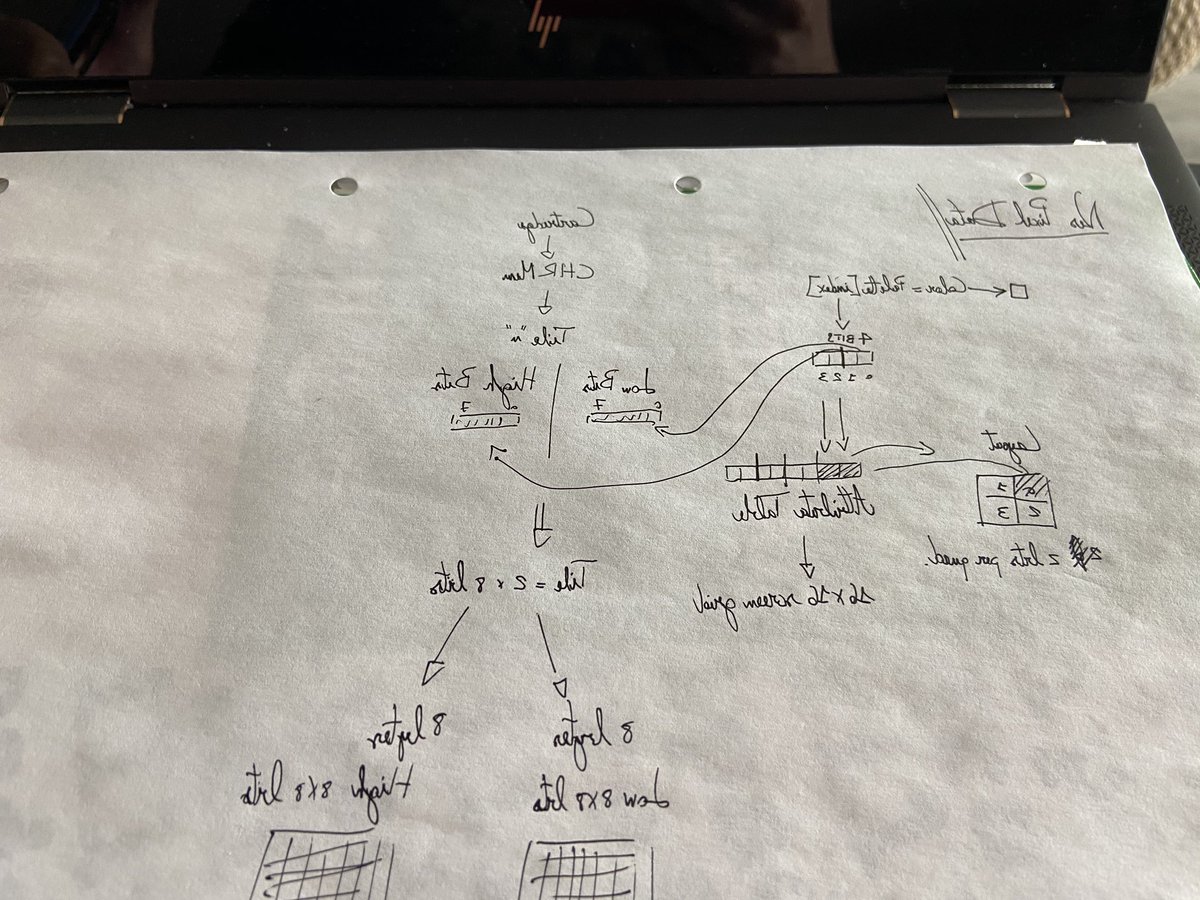 Nes Pixel Data
Color = Palette[index]
4 BITS
0 1 2 3
Attribute Table
16x16 screen grid
Layout
0 1
2 3
2 bits per quad.
Cartredge
CHR Mem
Tile "n"
Low Bits
0 7
High Bits
0 7
Tile = 2 x 8 bits
8 bytes
Low 8x8 bits
8 bytes
High 8x8 bits
hp